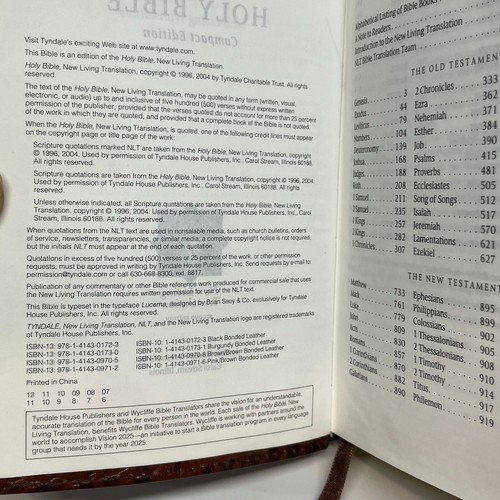 HOLY BIBLE
Compact Edition
Visit Tyndale's exciting Web site at www.tyndale.com.
This Bible is an edition of the Holy Bible, New Living Translation.
Holy Bible, New Living Translation, copyright © 1996, 2004 by Tyndale Charitable Trust. All rights
reserved.
The text of the Holy Bible, New Living Translation, may be quoted in any form (written, visual,
electronic, or audio) up to and inclusive of five hundred (500) verses without express written
permission of the publisher, provided that the verses quoted do not account for more than 25 percent
of the work in which they are quoted, and provided that a complete book of the Bible is not quoted.
When the Holy Bible, New Living Translation, is quoted, one of the following credit lines must appear
on the copyright page or title page of the work:
Scripture quotations marked NLT are taken from the Holy Bible, New Living Translation, copyright
© 1996, 2004. Used by permission of Tyndale House Publishers, Inc., Carol Stream, Illinois 60188.
All rights reserved.
Scripture quotations are taken from the Holy Bible, New Living Translation, copyright © 1996, 2004.
Used by permission of Tyndale House Publishers, Inc., Carol Stream, Illinois 60188. All rights
reserved.
Unless otherwise indicated, all Scripture quotations are taken from the Holy Bible, New Living
Translation, copyright © 1996, 2004. Used by permission of Tyndale House Publishers, Inc., Carol
Stream, Illinois 60188. All rights reserved.
When quotations from the NLT text are used in nonsalable media, such as church bulletins, orders
of service, newsletters, transparencies, or similar media, a complete copyright notice is not required,
but the initials NLT must appear at the end of each quotation.
Quotations in excess of five hundred (500) verses or 25 percent of the work, or other permission
requests, must be approved in writing by Tyndale House Publishers, Inc. Send requests by e-mail to:
permission@tyndale.com or call 630-668-8300, ext. 8817.
Publication of any commentary or other Bible reference work produced for commercial sale that uses
the New Living Translation requires written permission for use of the NLT text.
This Bible is typeset in the typeface Lucerna, designed by Brian Sooy & Co. exclusively for Tyndale
House Publishers, Inc. All rights reserved.
TYNDALE, New Living Translation, NLT, and the New Living Translation logo are registered trademarks
of Tyndale House Publishers, Inc.
ISBN-13: 978-1-4143-0172-3 ISBN-10: 1-4143-0172-3 Black Bonded Leather
ISBN-13: 978-1-4143-0173-0 ISBN-10: 1-4143-0173-1 Burgundy Bonded Leather
ISBN-13: 978-1-4143-0970-5 ISBN-10: 1-4143-0970-8 Brown/Brown Bonded Leather
ISBN-13: 978-1-4143-0971-2 ISBN-10: 1-4143-0971-6 Pink/Brown Bonded Leather
Printed in China
12 11 10 09 08 07
11 10 9 8 7 6
Tyndale House Publishers and Wycliffe Bible Translators share the vision for an understandable,
accurate translation of the Bible for every person in the world. Each sale of the Holy Bible, New
Living Translation, benefits Wycliffe Bible Translators. Wycliffe is working with partners around the
world to accomplish Vision 2025—an initiative to start a Bible translation program in every language
group that needs it by the year 2025.
Alphabetical Listing of Bible Books
A Note to Readers
Introduction to the New Living Translation
NLT Bible Translation Team
THE OLD TESTAMENT
Genesis 3
Exodus 44
Leviticus 79
Numbers 104
Deuteronomy 139
Joshua 168
Judges 188
Ruth 208
1 Samuel 211
2 Samuel 235
1 Kings 257
2 Kings 282
1 Chronicles 307
2 Chronicles 333
Ezra 362
Nehemiah 371
Esther 384
Job 390
Psalms 415
Proverbs 481
Ecclesiastes 505
Song of Songs 512
Isaiah 517
Jeremiah 570
Lamentations 621
Ezekiel 627
THE NEW TESTAMENT
Matthew 733
Mark 761
Luke 779
John 809
Acts 830
Romans 857
1 Corinthians 870
2 Corinthians 882
Galatians 890
Ephesians 895
Philippians 899
Colossians 902
1 Thessalonians
2 Thessalonians 908
1 Timothy 910
2 Timothy 914
Titus 917
Philemon 919